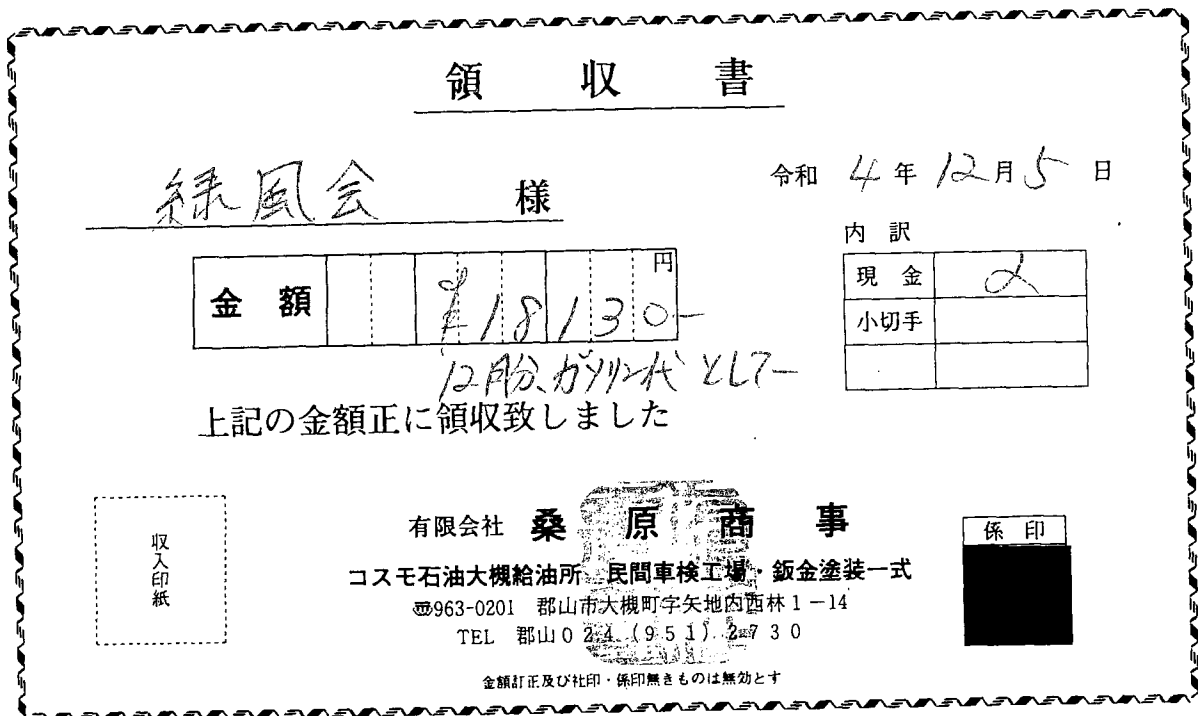 領 収 書
緑風会 様
令和 4 年 12 月 5 日
金 額 ¥18130- 円
12月分、ガソリン代 として
上記の金額正に領収致しました
内 訳
現 金
小切手
収入印紙
有限会社 桑 原 商 事
コスモ石油大槻給油所 民間車検工場・鈑金塗装一式
〠963-0201 郡山市大槻町字矢地内西林1-14
TEL 郡山024(951)2730
係 印
金額訂正及び社印・係印無きものは無効とす